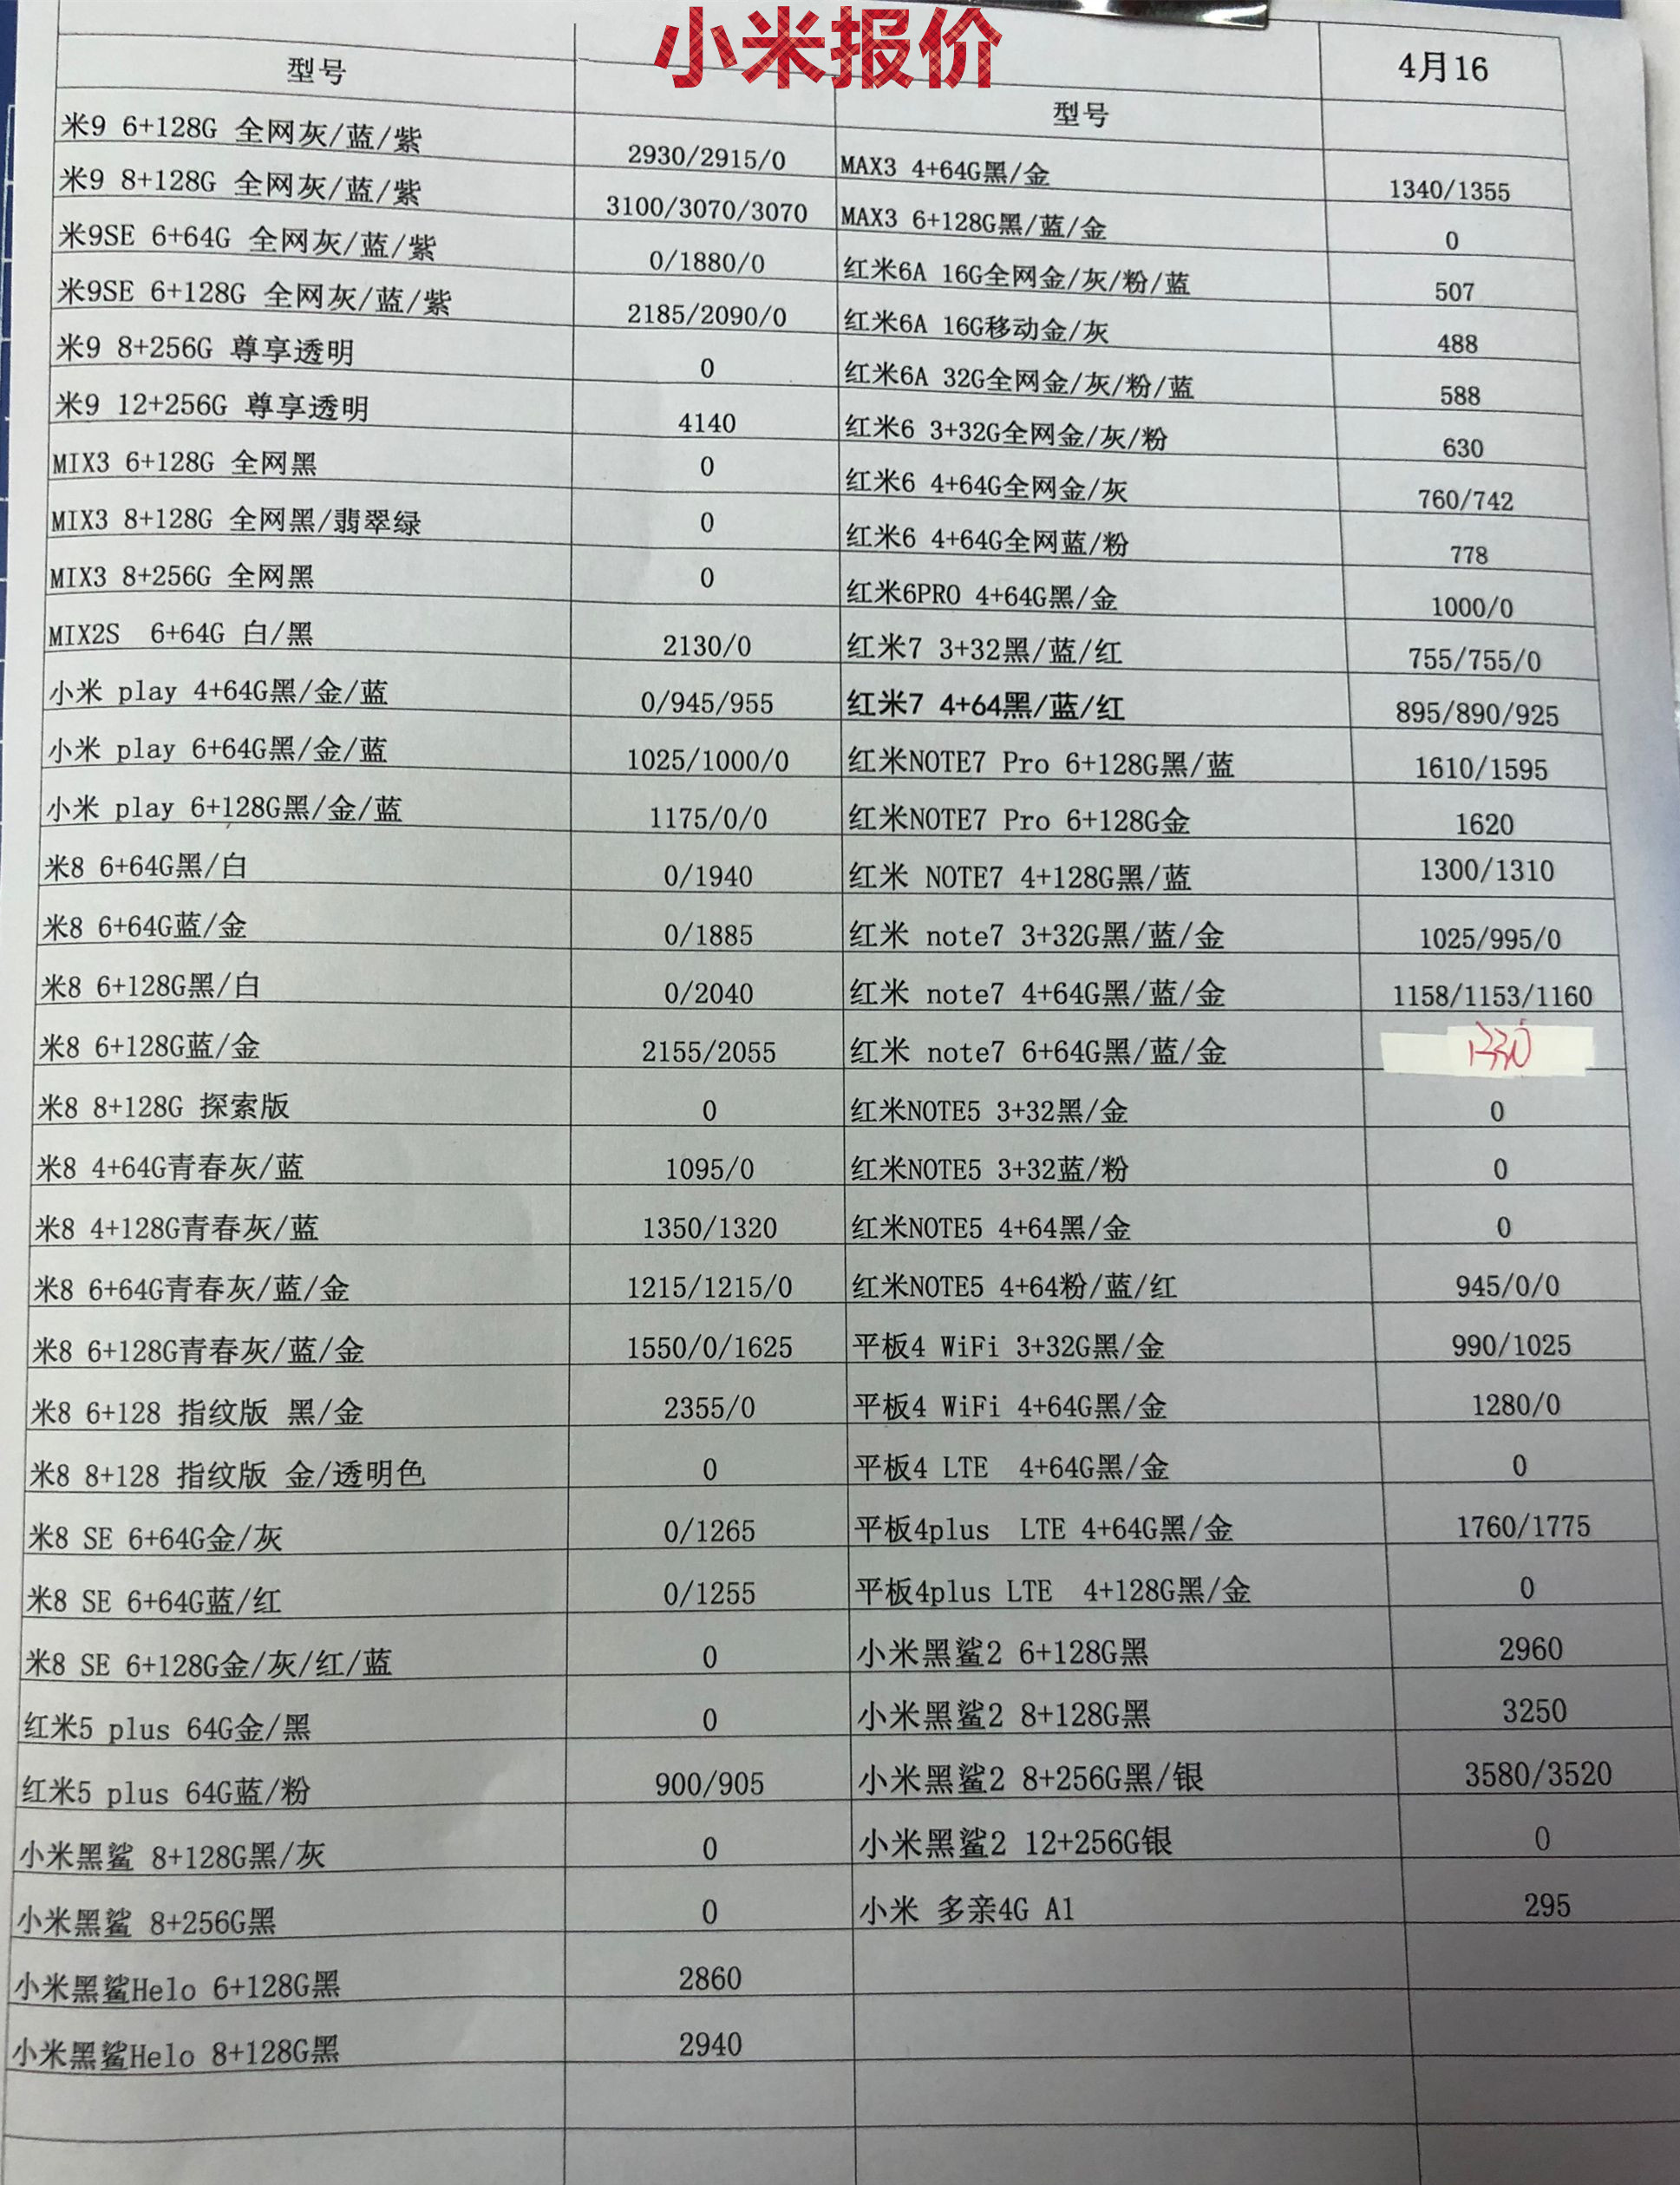 小米报价
4月16
型号
型号
米9 6+128G 全网灰/蓝/紫 2930/2915/0 MAX3 4+64G黑/金 1340/1355
米9 8+128G 全网灰/蓝/紫 3100/3070/3070 MAX3 6+128G黑/蓝/金 0
米9SE 6+64G 全网灰/蓝/紫 0/1880/0 红米6A 16G全网金/灰/粉/蓝 507
米9SE 6+128G 全网灰/蓝/紫 2185/2090/0 红米6A 16G移动金/灰 488
米9 8+256G 尊享透明 0 红米6A 32G全网金/灰/粉/蓝 588
米9 12+256G 尊享透明 4140 红米6 3+32G全网金/灰/粉 630
MIX3 6+128G 全网黑 0 红米6 4+64G全网金/灰 760/742
MIX3 8+128G 全网黑/翡翠绿 0 红米6 4+64G全网蓝/粉 778
MIX3 8+256G 全网黑 0 红米6PRO 4+64G黑/金 1000/0
MIX2S 6+64G 白/黑 2130/0 红米7 3+32黑/蓝/红 755/755/0
小米 play 4+64G黑/金/蓝 0/945/955 红米7 4+64黑/蓝/红 895/890/925
小米 play 6+64G黑/金/蓝 1025/1000/0 红米NOTE7 Pro 6+128G黑/蓝 1610/1595
小米 play 6+128G黑/金/蓝 1175/0/0 红米NOTE7 Pro 6+128G金 1620
米8 6+64G黑/白 0/1940 红米 NOTE7 4+128G黑/蓝 1300/1310
米8 6+64G蓝/金 0/1885 红米 note7 3+32G黑/蓝/金 1025/995/0
米8 6+128G黑/白 0/2040 红米 note7 4+64G黑/蓝/金 1158/1153/1160
米8 6+128G蓝/金 2155/2055 红米 note7 6+64G黑/蓝/金 1330
米8 8+128G 探索版 0 红米NOTE5 3+32黑/金 0
米8 4+64G青春灰/蓝 1095/0 红米NOTE5 3+32蓝/粉 0
米8 4+128G青春灰/蓝 1350/1320 红米NOTE5 4+64黑/金 0
米8 6+64G青春灰/蓝/金 1215/1215/0 红米NOTE5 4+64粉/蓝/红 945/0/0
米8 6+128G青春灰/蓝/金 1550/0/1625 平板4 WiFi 3+32G黑/金 990/1025
米8 6+128 指纹版 黑/金 2355/0 平板4 WiFi 4+64G黑/金 1280/0
米8 8+128 指纹版 金/透明色 0 平板4 LTE 4+64G黑/金 0
米8 SE 6+64G金/灰 0/1265 平板4plus LTE 4+64G黑/金 1760/1775
米8 SE 6+64G蓝/红 0/1255 平板4plus LTE 4+128G黑/金 0
米8 SE 6+128G金/灰/红/蓝 0 小米黑鲨2 6+128G黑 2960
红米5 plus 64G金/黑 0 小米黑鲨2 8+128G黑 3250
红米5 plus 64G蓝/粉 900/905 小米黑鲨2 8+256G黑/银 3580/3520
小米黑鲨 8+128G黑/灰 0 小米黑鲨2 12+256G银 0
小米黑鲨 8+256G黑 0 小米 多亲4G A1 295
小米黑鲨Helo 6+128G黑 2860
小米黑鲨Helo 8+128G黑 2940